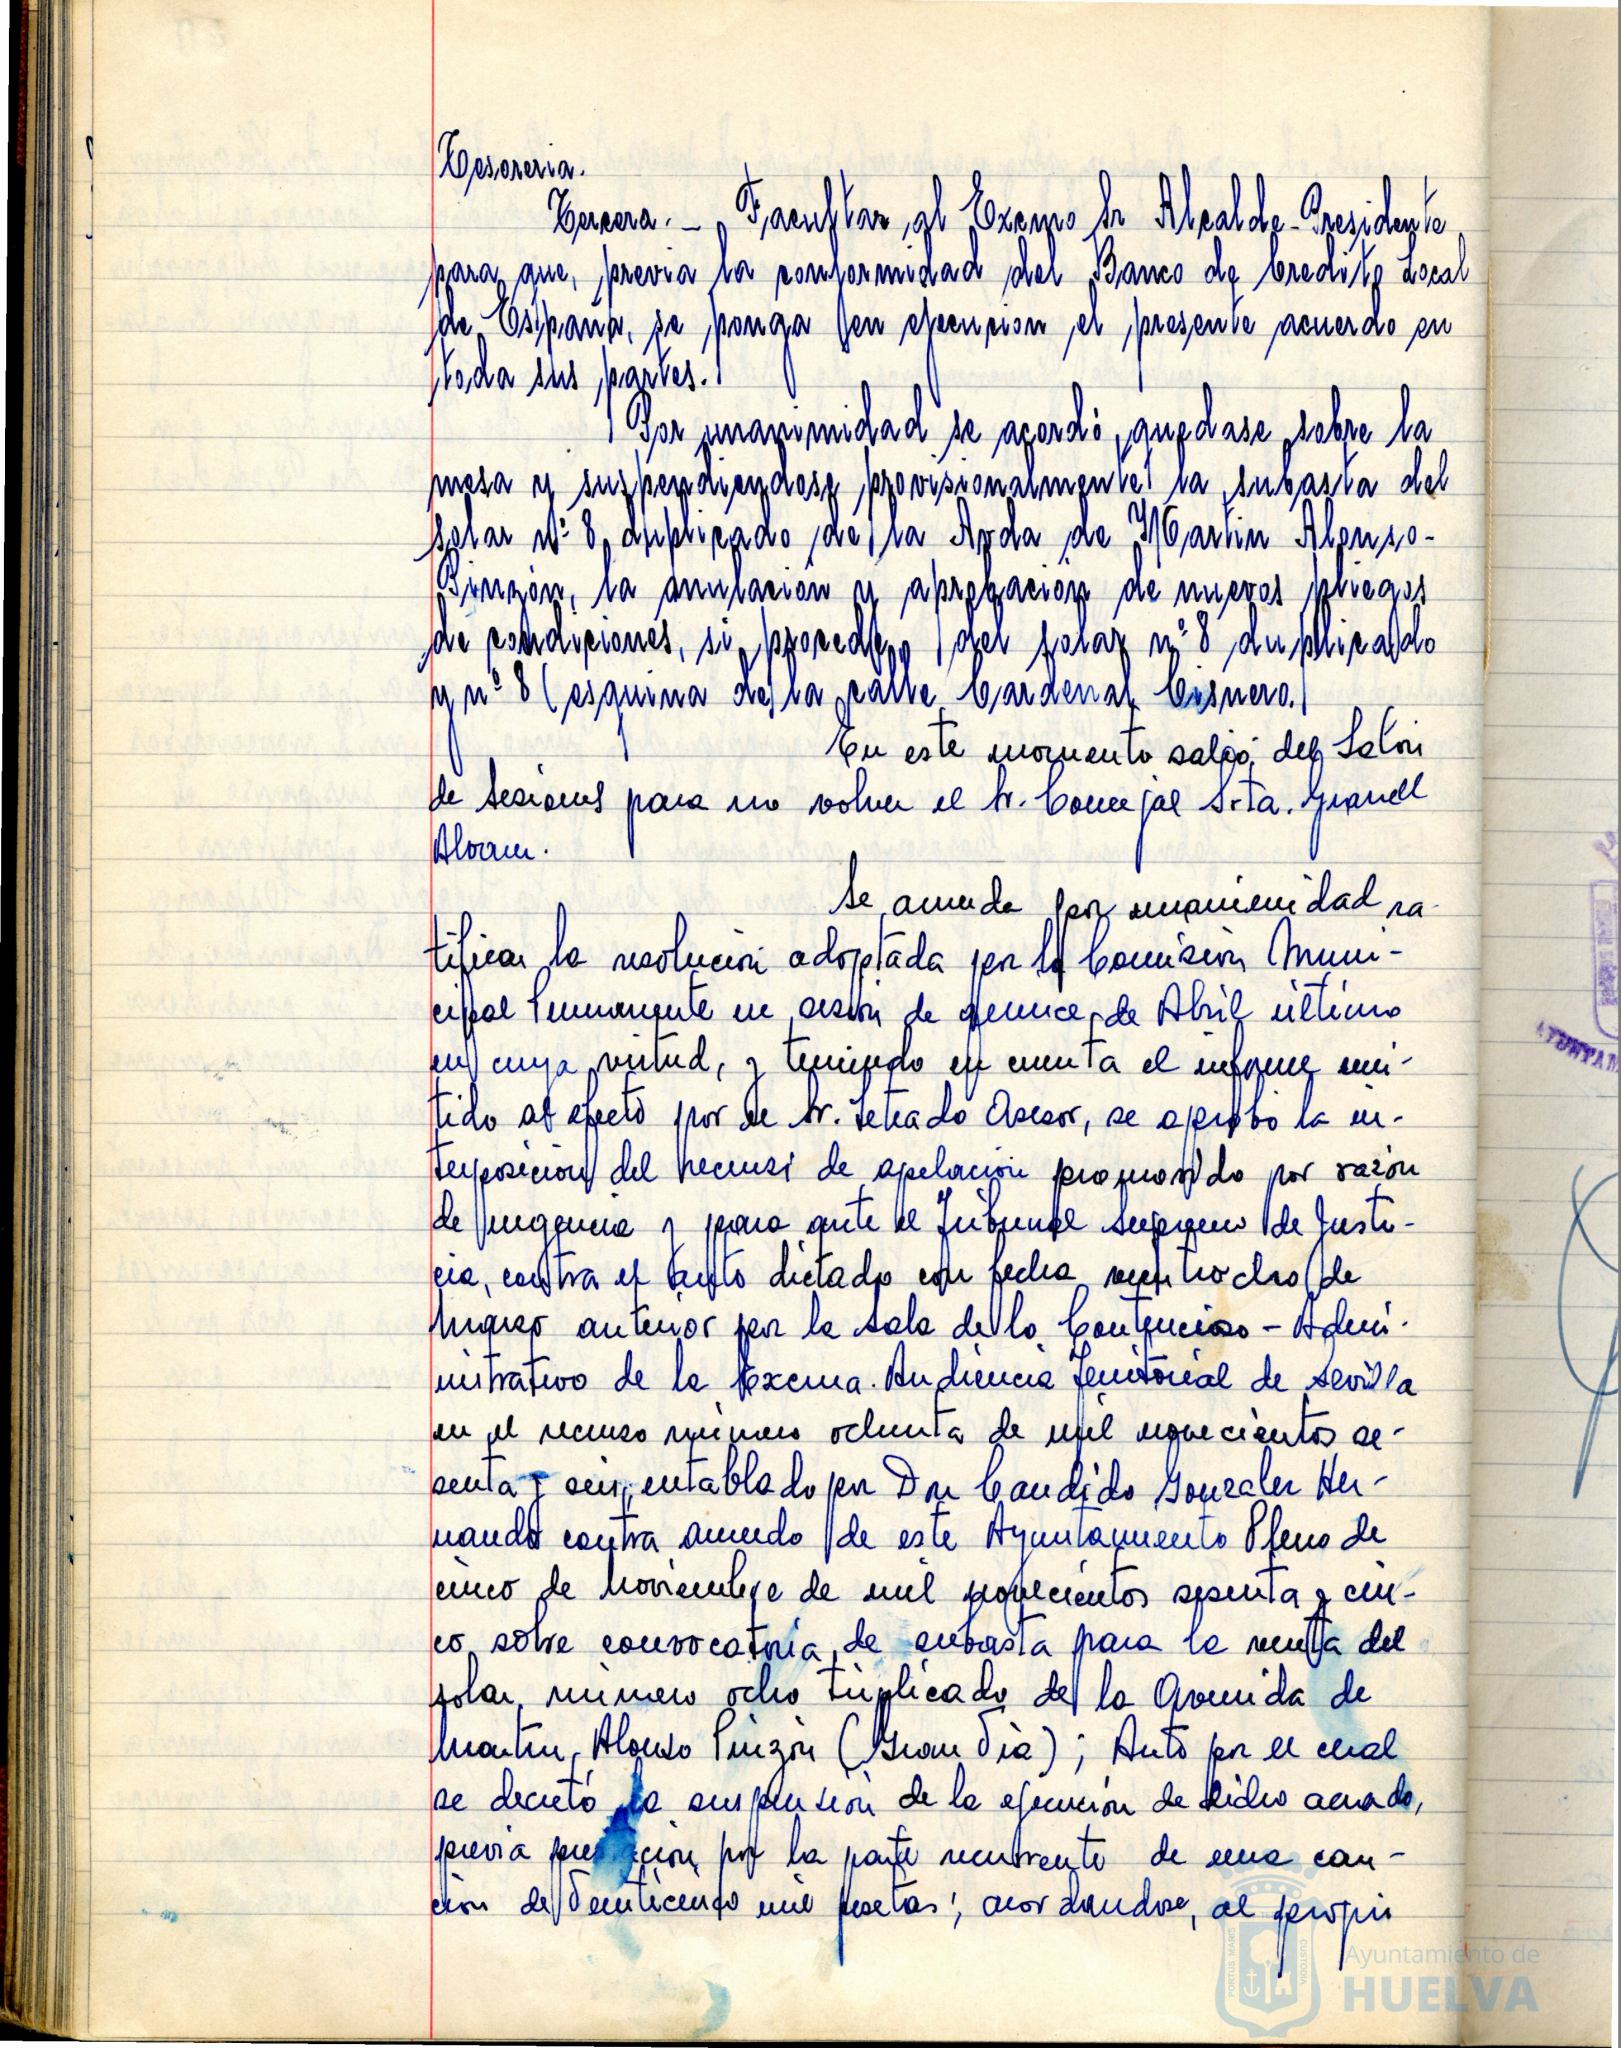 Tesoreria.
Tercera. — Facultar al Excmo Sr Alcalde-Presidente
para que, previa la conformidad del Banco de Credito Local
de España, se ponga en ejecucion el presente acuerdo en
toda sus partes.
Por unanimidad se acordó, quedase sobre la
mesa y suspendiendose provisionalmente la subasta del
solar nº 8 duplicado de la Avda de Martin Alonso-
Pinzón, la anulación y aprobación de nuevos pliegos
de condiciones, si procede, del solar nº 8 duplicado
y nº 8 (esquina de la calle Cardenal Cisnero.)
En este momento salió del Salón
de Sesiones para no volver el Sr. Concejal Srta. Granell
Alvarez.
Se acuerda por unanimidad ra-
tificar la resolución adoptada por la Comisión Muni-
cipal Permanente en sesión de quince de Abril último
en cuya virtud, y teniendo en cuenta el informe emi-
tido al efecto por el Sr. Letrado Asesor, se aprobó la in-
terposicion del recurso de apelación promovido por razón
de urgencia y para ante el Tribunal Supremo de Justi-
cia, contra el auto dictado con fecha veintiocho de
Marzo anterior por la Sala de lo Contencioso - Admi-
nistrativo de la Excma. Audiencia Territorial de Sevilla
en el recurso número ochenta de mil novecientos se-
senta y seis, entablado por Don Candido Gonzalez Her-
nando contra acuerdo de este Ayuntamiento Pleno de
cinco de Noviembre de mil novecientos sesenta y cin-
co sobre convocatoria de subasta para la venta del
solar número ocho triplicado de la Avenida de
Martin Alonso Pinzón (Gran Via); Auto por el cual
se decretó la suspensión de la ejecución de dicho acuerdo,
previa por la parte recurrente de una cau-
ción de veinticinco mil pesetas; acordandose, al propio
PORTUS MARIS
CUSTODIA
Ayuntamiento de
HUELVA